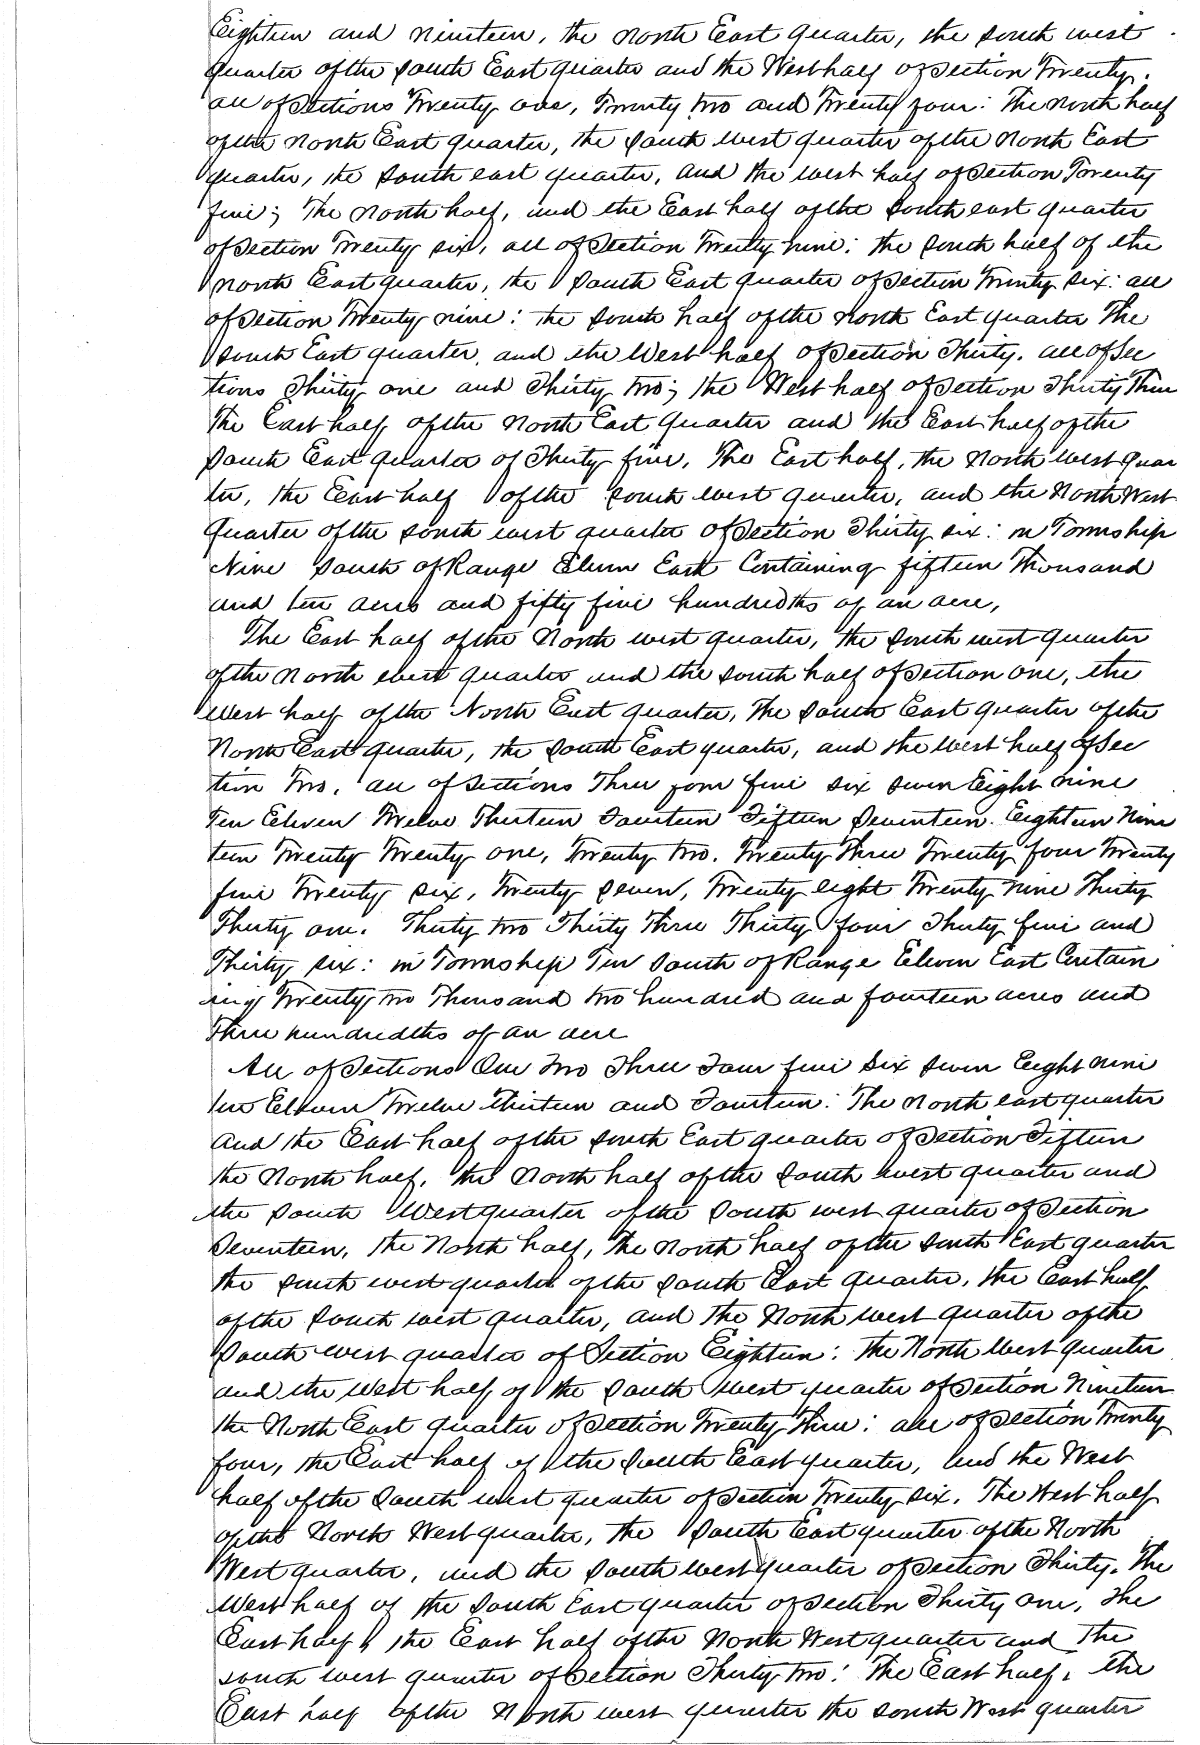 Eighteen and Nineteen, the North East quarter, the South west
quarter of the South East quarter and the West half of Section Twenty.
all of Sections Twenty one, Twenty two and Twenty four: The North half
of the North East quarter, the South west quarter of the North East
quarter, the South east quarter, and the west half of Section Twenty
five; The North half, and the East half of the South east quarter
of Section Twenty six, all of Section Twenty nine: the South half of the
North East quarter, the South East quarter of Section Twenty six: all
of Section Twenty nine: the South half of the North East quarter The
South East quarter, and the West half of Section Thirty. all of Sec
tions Thirty one and Thirty two; the West half of Section Thirty Three
The East half of the North East quarter and the East half of the
South East quarter of Thirty five, The East half, the North west quar
ter, the East half of the South west quarter, and the North West
quarter of the South west quarter of Section Thirty six: in Township
Nine South of Range Eleven East Containing fifteen Thousand
and ten acres and fifty five hundredths of an acre,
The East half of the North west quarter, the South west quarter
of the North west quarter and the South half of Section one, the
West half of the North East quarter, The South East quarter of the
North East quarter, the South East quarter, and the West half of Sec
tion Two, all of Sections Three four five six seven Eight nine
Ten Eleven Twelve Thirteen Fourteen Fifteen Seventeen. Eighteen Nine
teen Twenty Twenty one, Twenty two. Twenty Three Twenty four Twenty
five Twenty six, Twenty seven, Twenty eight Twenty nine Thirty
Thirty one. Thirty two Thirty Three Thirty four Thirty five and
Thirty six: in Township Ten South of Range Eleven East Contain
ing Twenty two Thousand two hundred and fourteen acres and
Three hundredths of an acre
All of Sections One Two Three Four five Six seven Eight nine
ten Eleven Twelve Thirteen and Fourteen: The North east quarter
and the East half of the South East quarter of Section Fifteen
the North half, the North half of the South west quarter and
the South West quarter of the South west quarter of Section
Seventeen, the North half, the North half of the South East quarter
the South west quarter of the South East quarter, the East half
of the South west quarter, and the North west quarter of the
South west quarter of Section Eighteen: the North West quarter
and the West half of the South West quarter of Section Nineteen
the North East quarter of Section Twenty Three: all of Section Twenty
four, the East half of the South East quarter, and the West
half of the South west quarter of Section Twenty six, The West half
of the North West quarter, the South East quarter of the North
West quarter, and the South west quarter of Section Thirty. The
West half of the South East quarter of Section Thirty one, The
East half, the East half of the North West quarter and The
South west quarter of Section Thirty two: The East half, the
East half of the North west quarter the South West quarter